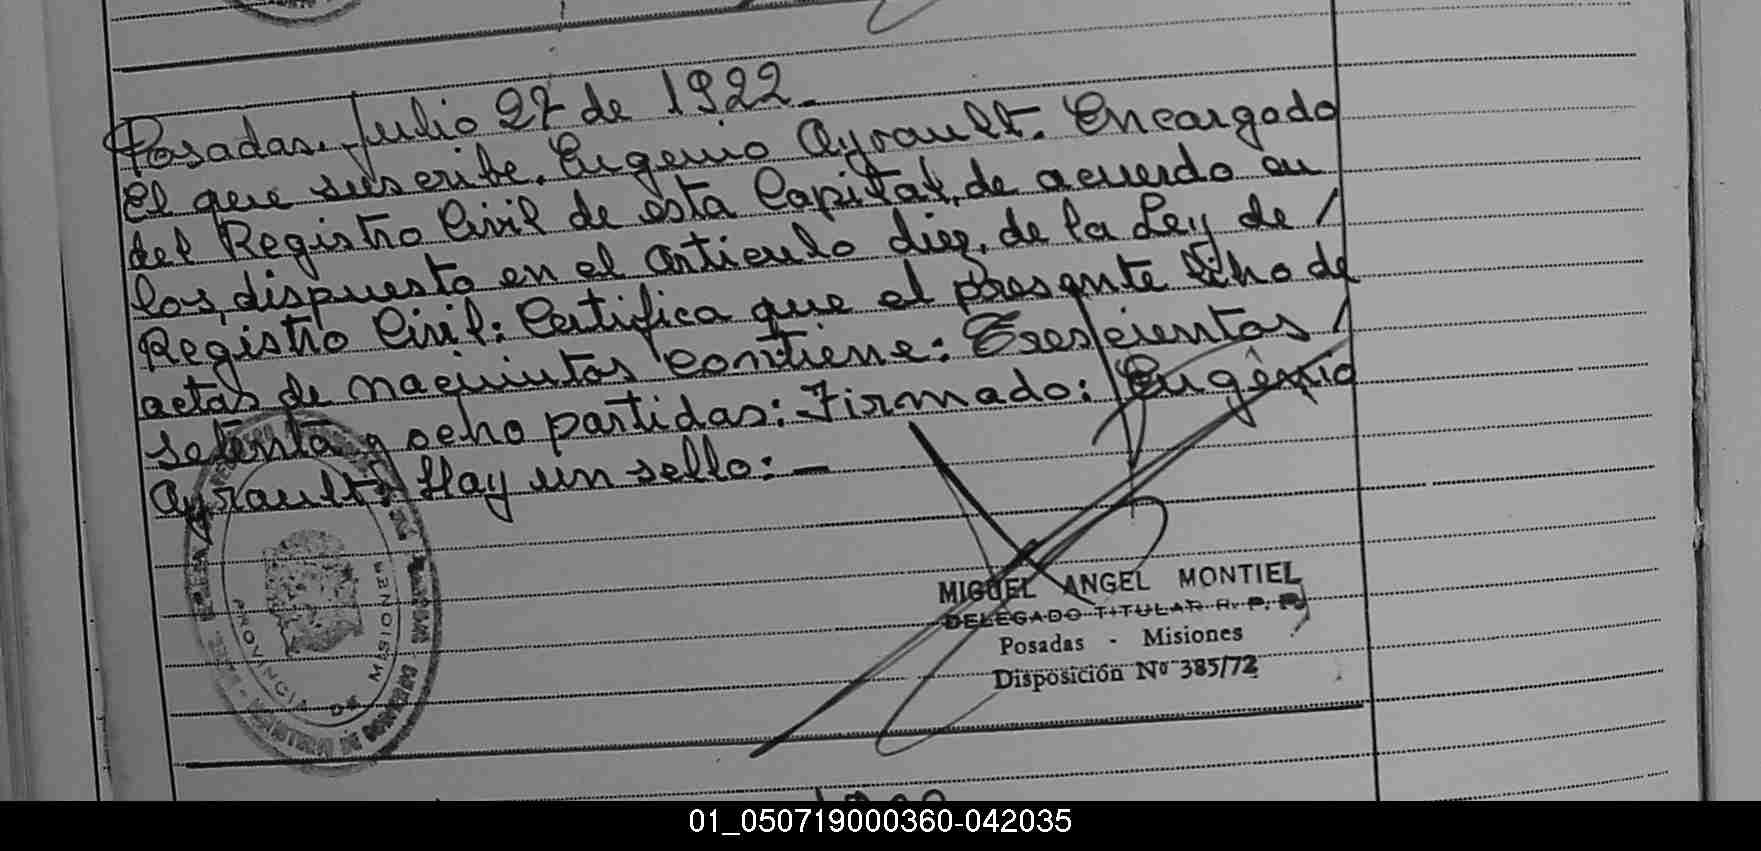 Posadas, Julio 27 de 1922.-
El que suscribe. Eugenio Ayrault. Encargado
del Registro Civil de esta Capital, de acuerdo a
los, dispuesto en el articulo diez, de la Ley de /
Registro Civil: Certifica que el presente
actas de contiene: Trescientas /
setenta y ocho partidas: Firmado: Eugenio
Ayrault: Hay un sello: -
MIGUEL ANGEL MONTIEL
DELEGADO TITULAR R. P. P.
Posadas - Misiones
Disposición Nº 385/72
PROVINCIA DE MISIONES
01_050719000360-042035